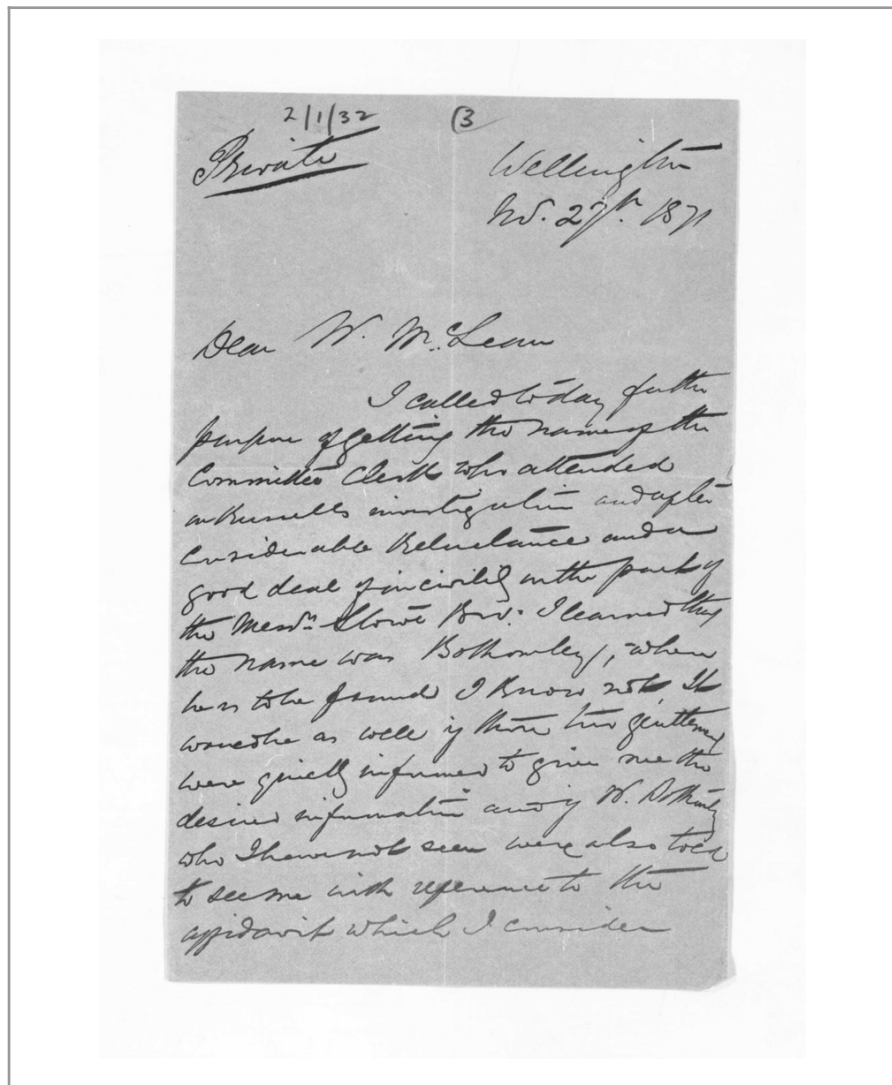 2/1/32 (3
Private
Wellington
Nov. 27th. 1871
Dear Mr. McLean
I called to day for the
purpose of getting the name of the
Committee Clerk who attended
on Russells investigation and after
Considerable Reluctance and a
good deal of incivility on the part of
the Messrs Stowe Bro: I learned that
the name was Bothamley, where
he is to be found I know not It
would be as well if these two gentlemen
were quietly informed to give me the
desired information and if Mr. Bothamley
who I have not seen were also told
to see me with reference to the
affidavit which I consider